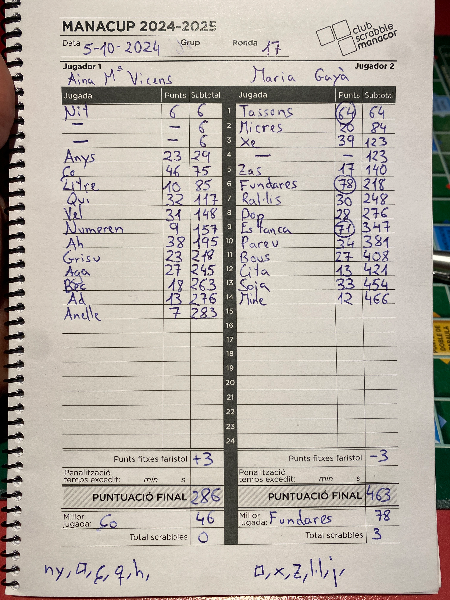 MANACUP 2024-2025
club scrabble manacor
Data 5-10-2024 Grup Ronda 17
Jugador 1 Jugador 2
Aina Mª Vicens Maria Gayà
Jugada Punts Subtotal Jugada Punts Subtotal
Nit 6 6 1 Tassons 64 64
— — 6 2 Micres 20 84
— — 6 3 Xe 39 123
Anys 23 29 4 — — 123
Ço 46 75 5 Zas 17 140
Litre 10 85 6 Fundares 78 218
Qui 32 117 7 Ral·lis 30 248
Vel 31 148 8 Dop 28 276
Numeren 9 157 9 Estanca 71 347
Ah 38 195 10 Pareu 34 381
Grisu 23 218 11 Bous 27 408
Aga 27 245 12 Cita 13 421
Boc 18 263 13 Soja 33 454
Ad 13 276 14 Mine 12 466
Anelle 7 283 15
16
17
18
19
20
21
22
23
24
Punts fitxes faristol +3 Punts fitxes faristol -3
Penalització temps excedit: min s Penalització temps excedit: min s
PUNTUACIÓ FINAL 286 PUNTUACIÓ FINAL 463
Millor jugada: Ço 46 Millor jugada: Fundares 78
Total scrabbles 0 Total scrabbles 3
ny, □, ç, q, h, □, x, z, l·l, j,